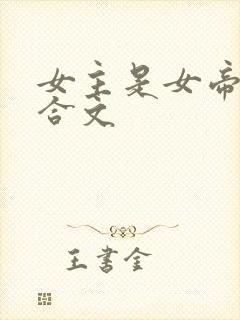 女主是女帝
合文
王书金